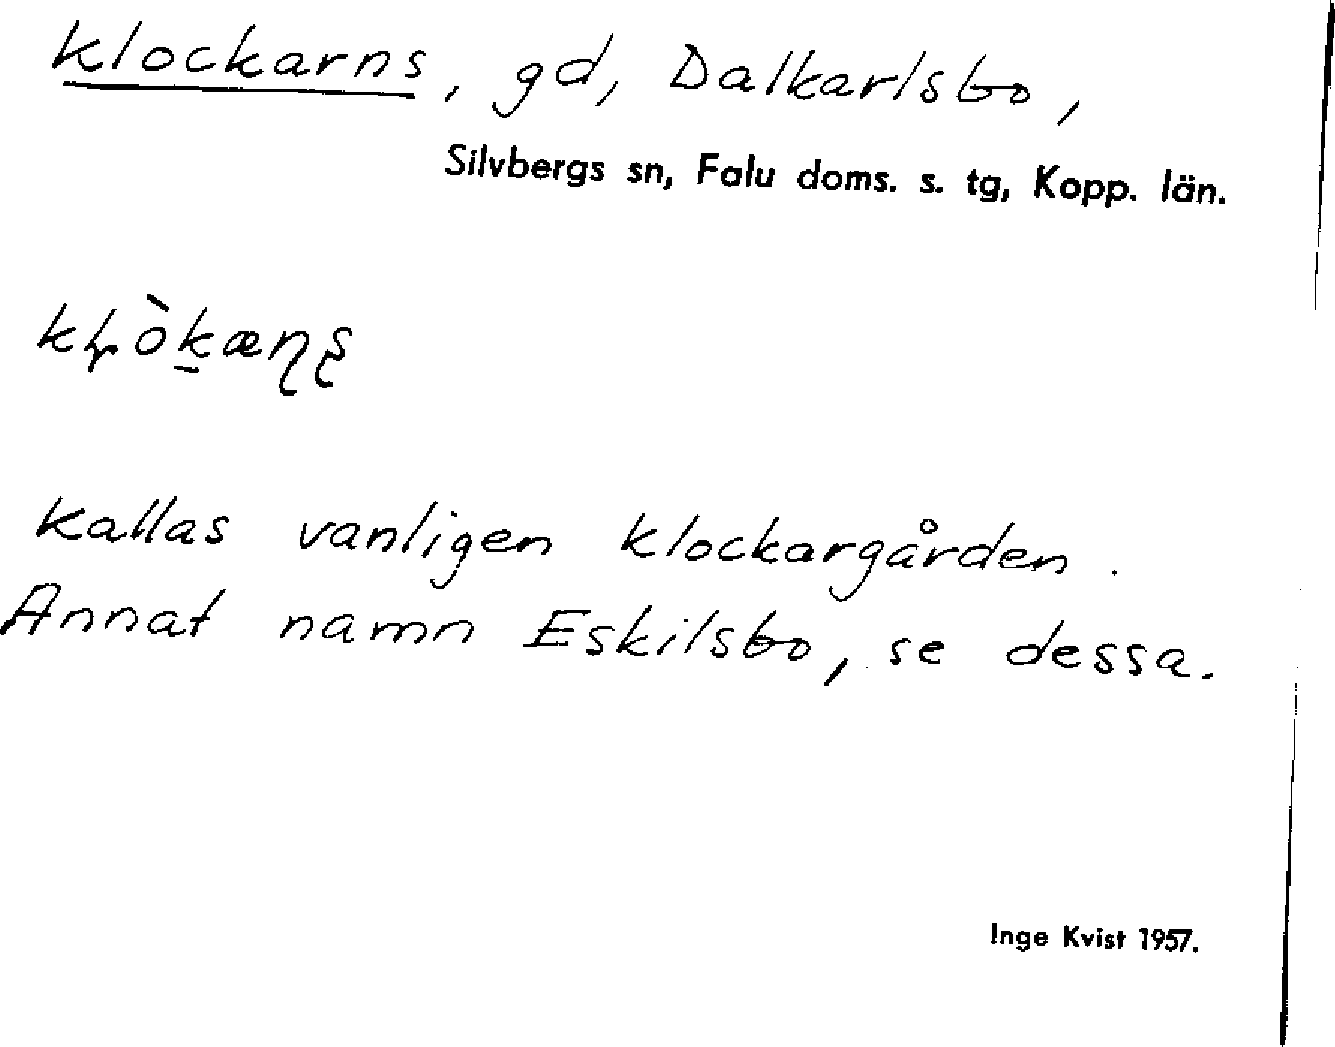 Klockarns, gd, Dalkarlsbo,
Silvbergs sn, Falu doms. s. tg, Kopp. län.
Kallas vanligen Klockargården.
Annat namn Eskilsbo, se dessa.
Inge Kvist 1957.